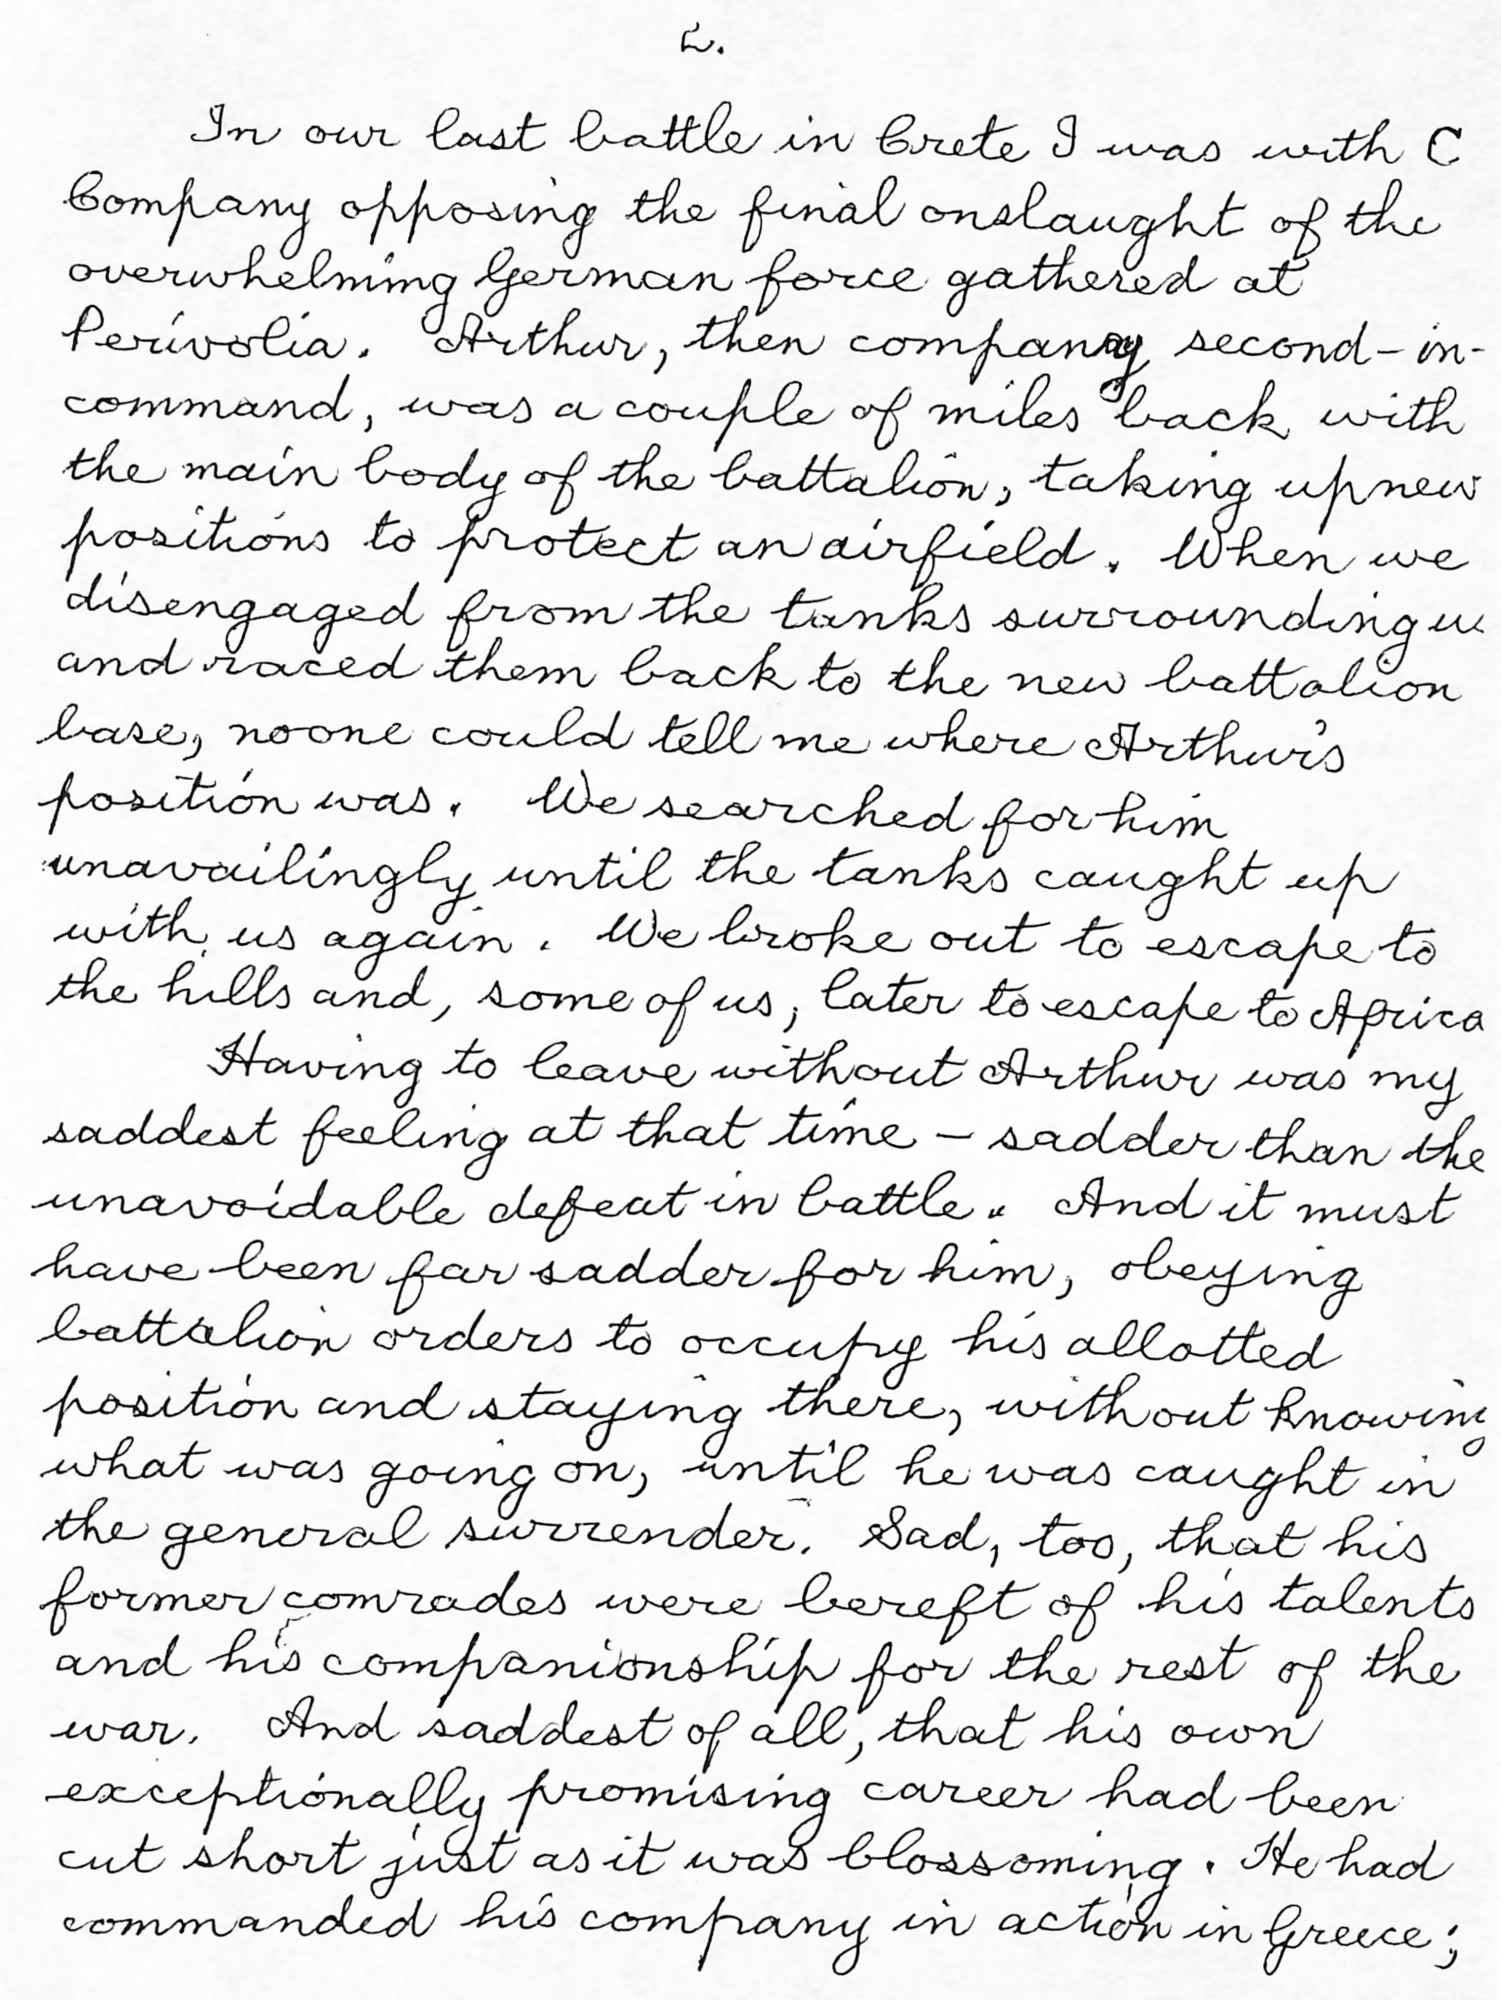 2.
In our last battle in Crete I was with C
Company opposing the final onslaught of the
overwhelming German force gathered at
Perivolia. Arthur, then company second-in-
command, was a couple of miles back with
the main body of the battalion, taking up new
positions to protect an airfield. When we
disengaged from the tanks surrounding us
and raced them back to the new battalion
base, no one could tell me where Arthur's
position was. We searched for him
unavailingly until the tanks caught up
with us again. We broke out to escape to
the hills and, some of us, later to escape to Africa
Having to leave without Arthur was my
saddest feeling at that time – sadder than the
unavoidable defeat in battle. And it must
have been far sadder for him, obeying
battalion orders to occupy his allotted
position and staying there, without knowing
what was going on, until he was caught in
the general surrender. Sad, too, that his
former comrades were bereft of his talents
and his companionship for the rest of the
war. And saddest of all, that his own
exceptionally promising career had been
cut short just as it was blossoming. He had
commanded his company in action in Greece;